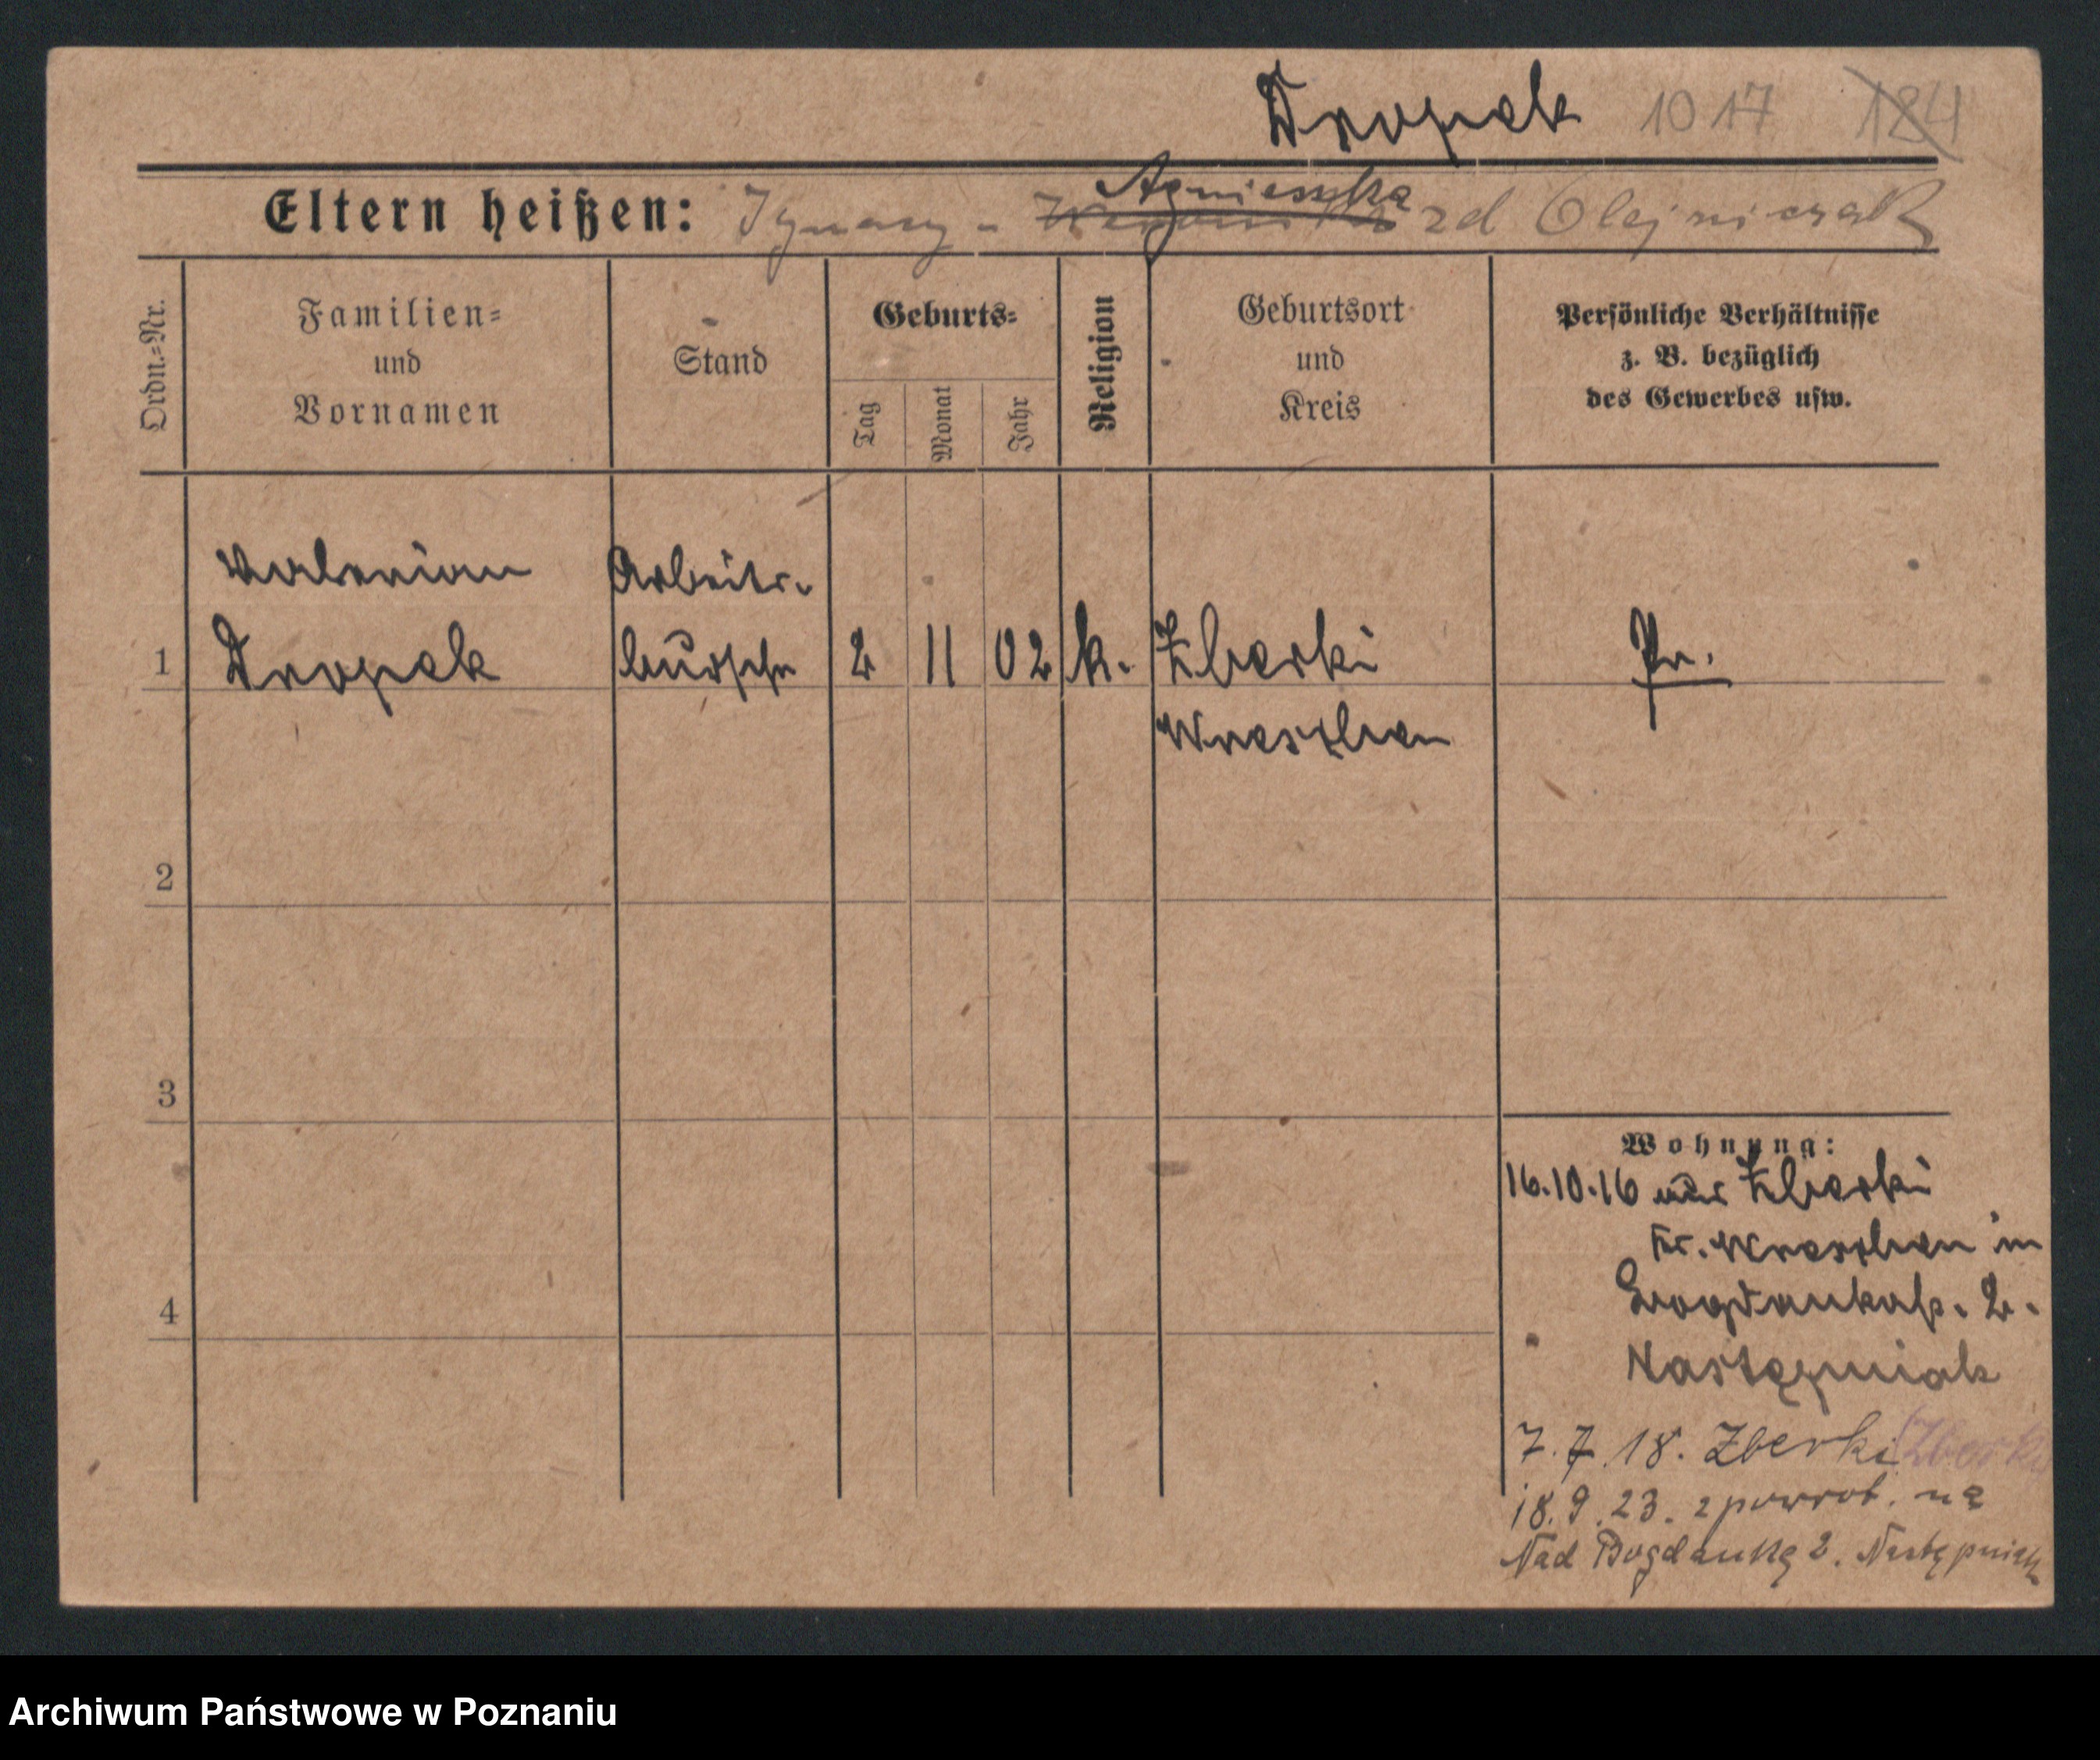 Dropek 1017 184
Eltern heißen: Ignacy - Agnieszka zd Olejniczak
Ordn.=Nr.
Familien=
und
Vornamen
Stand
Geburts=
Tag
Monat
Jahr
Religion
Geburtsort
und
Kreis
Persönliche Verhältnisse
z. B. bezüglich
des Gewerbes usw.
Valerian Arbeits-
1 Dropek bursche 2 11 02 k. Zberki Pr.
Wreschen
2
3
4
Wohnung:
16.10.16 aus Zberki
Kr. Wreschen in
Bogdankastr. 2.
Następniak
7.7.18. Zberki Zberki
18.9.23. z powrot. na
Nad Bogdanką 2. Następniak
Archiwum Państwowe w Poznaniu